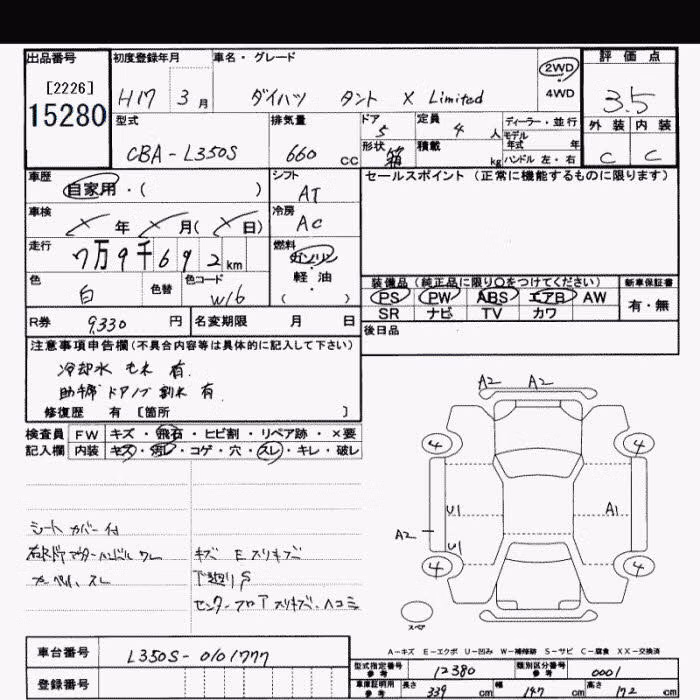 出品番号 初度登録年月 車名・グレード 評価点
[2226] 2WD
15280 H17 3月 ダイハツ タント X Limited 4WD 3.5
型式 排気量 ドア 定員 ディーラー・並行 外装 内装
CBA-L350S 660 cc 5 4人 モデル年式 年 C C
形状 箱 積載 kg ハンドル 左・右
車歴 シフト セールスポイント(正常に機能するものに限ります)
自家用・( ) AT
車検 冷房
年 月( 日) AC
走行 燃料
7万9千692km ガソリン
軽油
( )
色 色替 色コード 装備品(純正品に限り○をつけてください) 新車保証書
白 W16 PS PW ABS エアB AW 有・無
SR ナビ TV カワ
R券 9,330円 名変期限 月 日 後日品
注意事項申告欄(不具合内容等は具体的に記入して下さい)
冷却水 モレ 有.
助手席 ドアノブ 割れ 有.
修復歴 有 [箇所 ]
A2 A2
検査員 FW キズ・飛石・ヒビ割・リペア跡・×要
記入欄 内装 キズ・汚レ・コゲ・穴・スレ・キレ・破レ
4 4
U1 A1
A2
U1
4 4
シート カバー 付
キズ E スリキズ
カーペット スレ 下廻りS
センターフロア スリキズ、ヘコミ
スペア
A-キズ E-エクボ U-凹み W-補修跡 S-サビ C-腐食 XX-交換済
車台番号 L350S-0101777
型式指定番号 参考 12380 類別区分番号 参考 0001
登録番号
車庫証明用 参考 長さ 339cm 幅 147cm 高さ 172cm